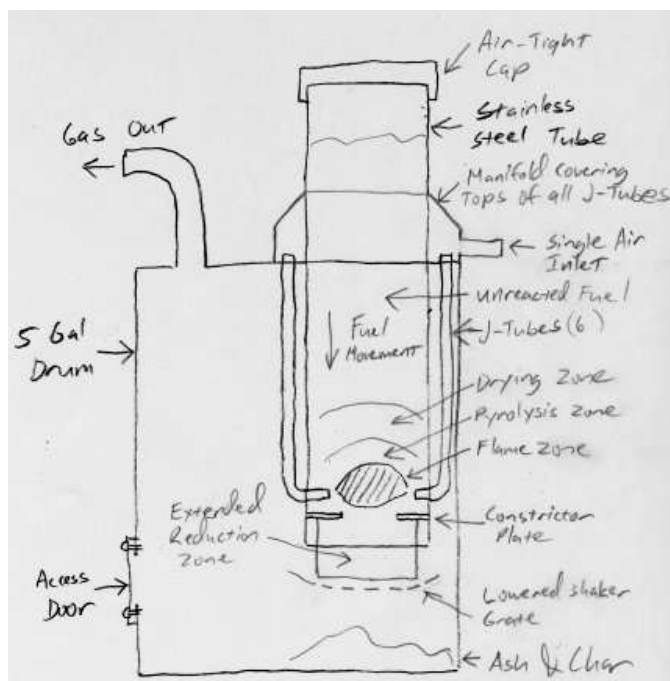 Air-Tight
Cap
Gas Out
Stainless
Steel Tube
Manifold covering
Tops of all J-Tubes
Single Air
Inlet
Unreacted Fuel
5 Gal
Drum
Fuel
Movement
J-Tubes (6)
Drying Zone
Pyrolysis Zone
Flame Zone
Extended
Reduction
Zone
Constrictor
Plate
Access
Door
Lowered shaker
Grate
Ash & Char